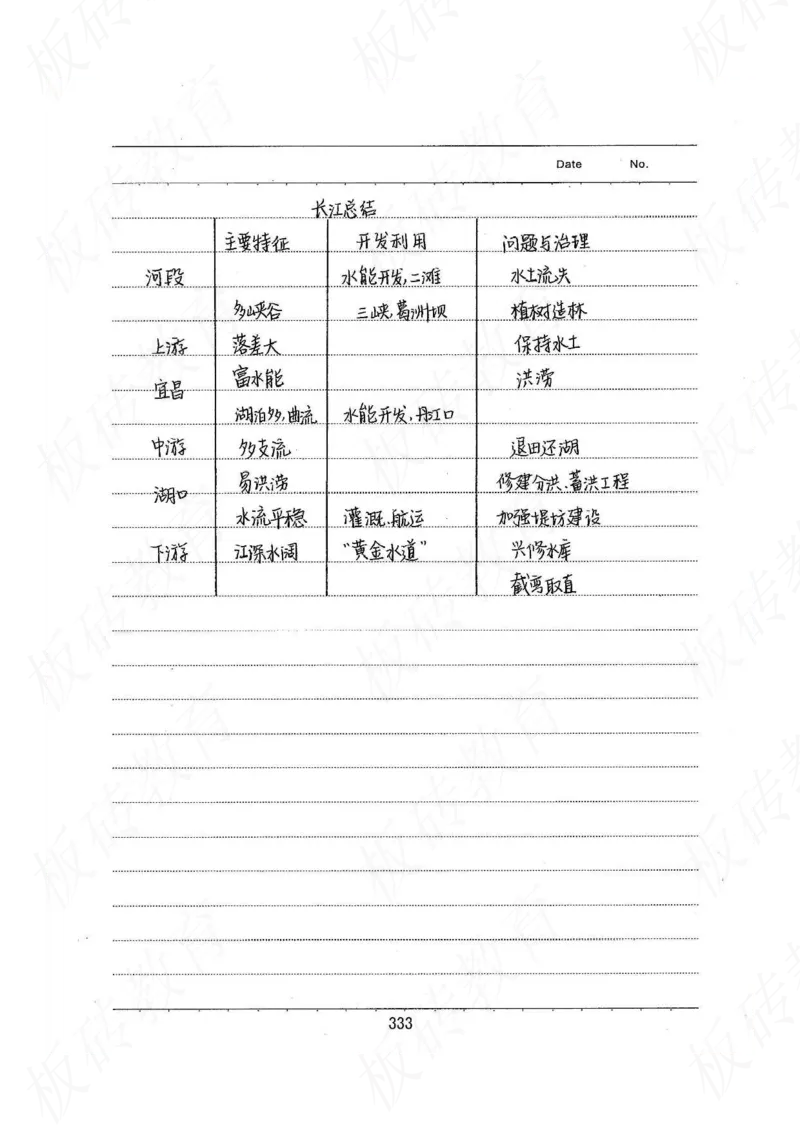 Date No.
长江总结
主要特征 开发利用 问题与治理
河段 水能开发,二滩 水土流失
多峡谷 三峡,葛洲坝 植树造林
上游 落差大 保持水土
宜昌 富水能 洪涝
湖泊多,曲流 水能开发,丹江口
中游 多支流 退田还湖
湖口 易洪涝 修建分洪、蓄洪工程
水流平稳 灌溉、航运 加强堤坊建设
下游 江深水阔 “黄金水道” 兴修水库
截弯取直
333
板砖教育